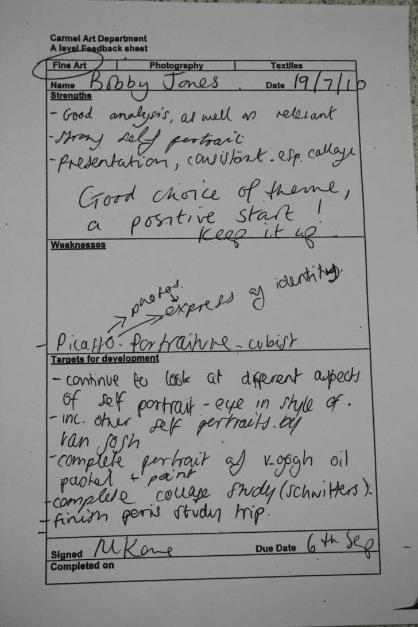 Carmel Art Department
A level Feedback sheet
Fine Art Photography Textiles
Name Bobby Jones Date 19/7/10
Strengths
- Good analysis, as well as relevant
- strong self portrait
- Presentation, consistant - esp. collage
Good choice of theme,
a positive start !
Keep it up.
Weaknesses
photos.
express of identity.
- Picasso - Portraiture - cubist
Targets for development
- continue to look at different aspects
of self portrait - eye in style of.
- inc. other self portraits by
van
- complete portrait of v.gogh oil
pastel + paint
- complete collage study (schwitters).
- finish study trip.
Signed M Kane Due Date 6th Sep
Completed on